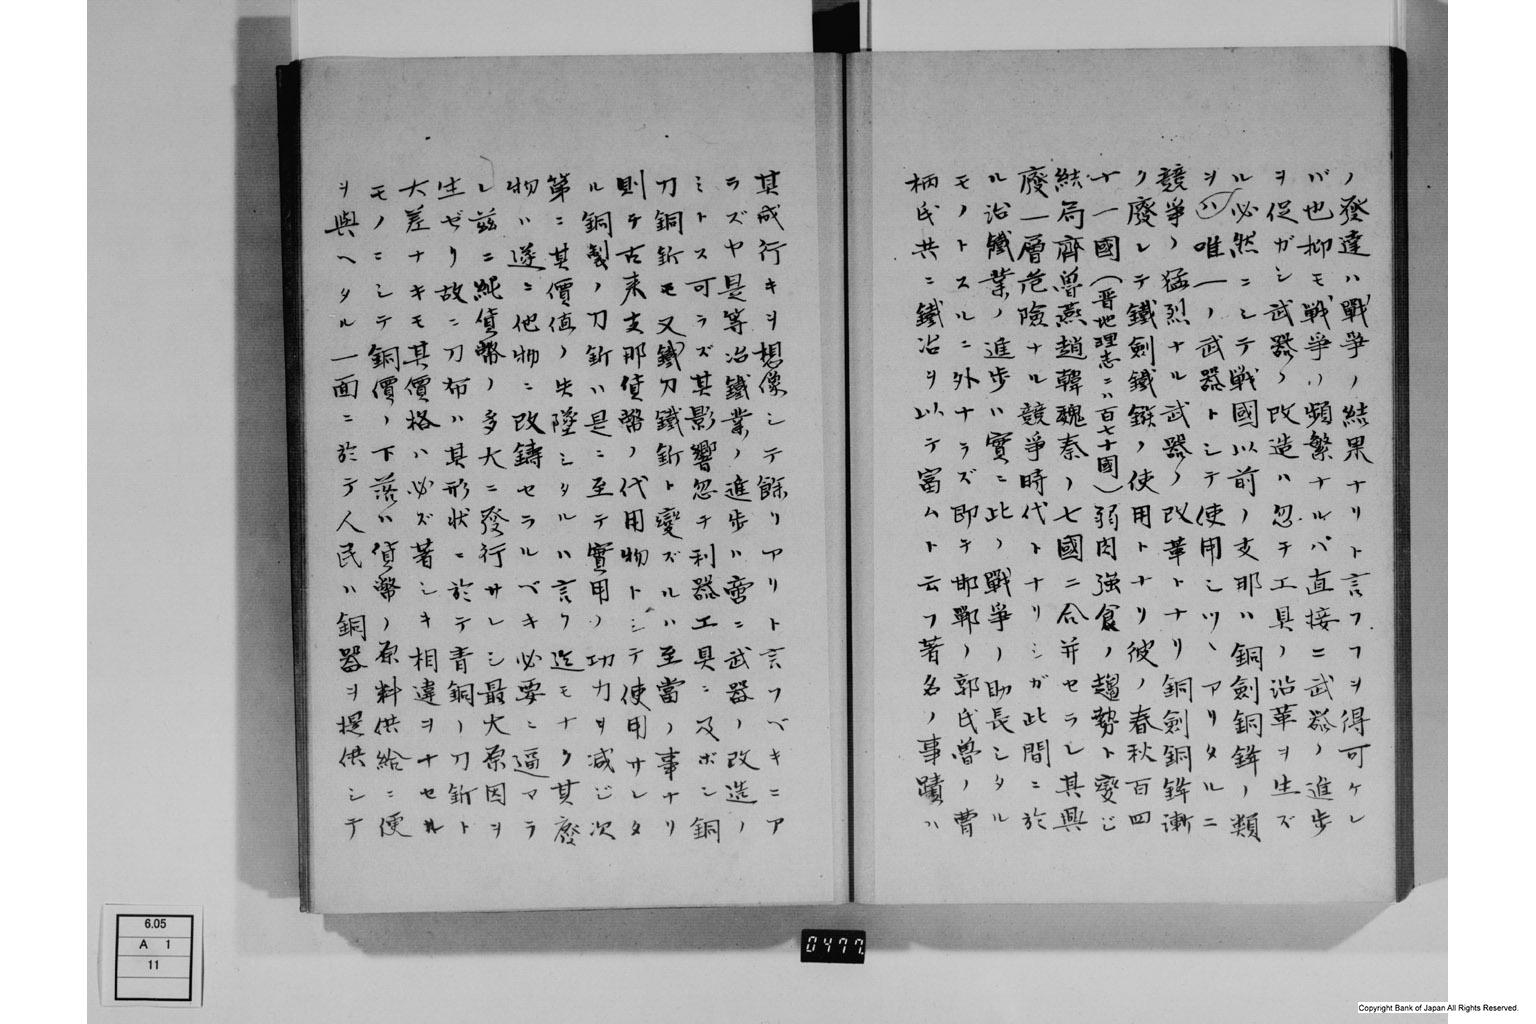 ノ發達ハ戰爭ノ結果ナリト言フヲ得可ケレ
バ也抑モ戦爭ハ頻繁ナルハ直接ニ武器ノ進歩
ヲ促ガシ武器ノ改造ハ忽チ工具ノ沿革ヲ生ズ
ル必然ニシテ戦國以前ノ支那ハ銅劍銅鉾ノ類
ヲ以唯一ノ武器トシテ使用シツヽアリタルニ
競爭ノ猛烈ナル武器ノ改革トナリ銅劍銅鉾漸
ク廢レテ鐵劍鐵鏃ノ使用トナリ彼ノ春秋百四
十一國(晋地理志ニハ百七十國)弱肉強食ノ趨勢ト變ジ
結局齊魯燕趙韓魏秦ノ七國ニ合并セラレ其興
廢一層危險ナル競爭時代トナリシガ此間ニ於
ル冶鐵業ノ進歩ハ實ニ此ノ戰爭ノ助長シタル
モノトスルニ外ナラズ即チ邯鄲ノ郭氏魯ノ曹
柄氏共ニ鐵冶ヲ以テ富ムト云フ著名ノ事蹟ハ
其成行キヲ想像シテ餘リアリト言フベキニア
ラズヤ是等冶鐵業ノ進歩ハ啻ニ武器ノ改造ノ
ミトス可ラズ其影響忽チ利器工具ニ及ボシ銅
刀銅釿モ又鐵刀鐵釿ト變ズルハ至當ノ事ナリ
則チ古来支那貨幣ノ代用物トシテ使用サレタ
ル銅製ノ刀釿ハ是ニ至テ實用ノ功力ヲ減ジ次
第ニ其價値ノ失墜シタルハ言ク迄モナク其廢
物ハ遂ニ他物ニ改鑄セラルベキ必要ニ逼マラ
レ茲ニ純貨幣ノ多大ニ發行サレシ最大原因ヲ
生ゼリ故ニ刀布ハ其形状ニ於テ青銅ノ刀釿ト
大差ナキモ其價格ハ必ズ著シキ相違ヲナセル
モノニシテ銅價ノ下落ハ貨幣ノ原料供給ニ便
ヲ與ヘタル一面ニ於テ人民ハ銅器ヲ提供シテ
6.05
A 1
11
0477
Copyright Bank of Japan All Rights Reserved.